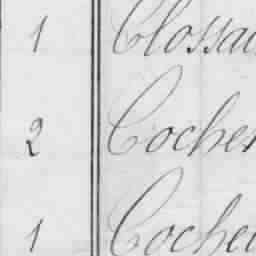 1 Clossa
2 Cocher
1 Coche